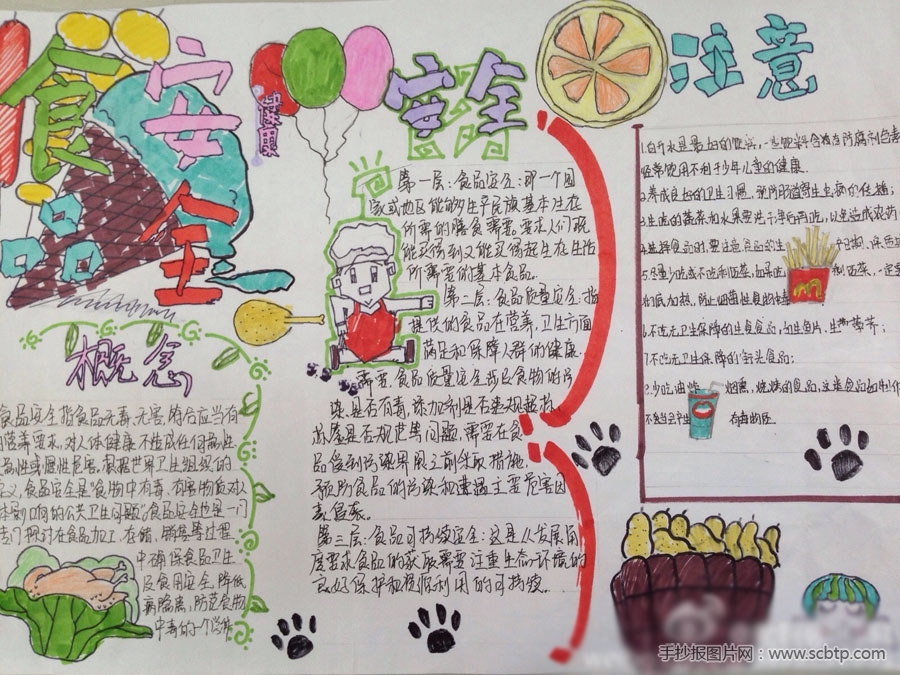 食
安
全
概念
食品安全指食品无毒、无害,符合应当有
营养要求,对人体健康不造成任何
急性或慢性危害。根据世界卫生组织的
定义,食品安全是"食物中有毒、有害物质对人
体影响的公共卫生问题"。食品安全也是一门
专门探讨在食品加工、存储、销售等过程
中确保食品卫生
及食用安全,降低
病隐患,防范食物
中毒的一个
安全
第一层:食品安全:即一个国
家或地区能够生平民族基本生存
所需的膳食需要。要求人们既
能买得到又能买得起生存生活
所需要的基本食品。
第二层:食品质量安全:指
提供的食品在营养,卫生方面
满足和保障人群的健康
需要,食品质量安全涉及食物的污
染、是否有毒,添加剂是否违规超标、
标签是否规范等问题,需要在食
品受到污染界限之前采取措施,
预防食品的污染和遭遇主要危害因
素侵袭。
第三层:食品可持续安全:这是从发展角
度要求食品的获取需要注重生态环境的
良好保护和资源利用的可持续。
注意
1.白开水是最好的饮料,一些饮料含有防腐剂色素
经常饮用不利于少年儿童的健康.
2.养成良好的卫生习惯,预防肠道寄生虫病的传播;
3.生吃的蔬菜和水果要洗干净后再吃,以免造成农药
4.选择食品时,要注意食品的生
5.尽量少吃或不吃剩饭菜,如果吃 剩饭菜,一定要
彻底加热,防止细菌性食物中毒
6.不吃无卫生保障的生食食品,如生鱼片、生 ;
7.不吃无卫生保障的街头食品;
8.少吃油炸、 烟熏、烧烤的食品,这类食品如制作
不当会产生 有毒物质.
手抄报图片网:www.scbtp.com